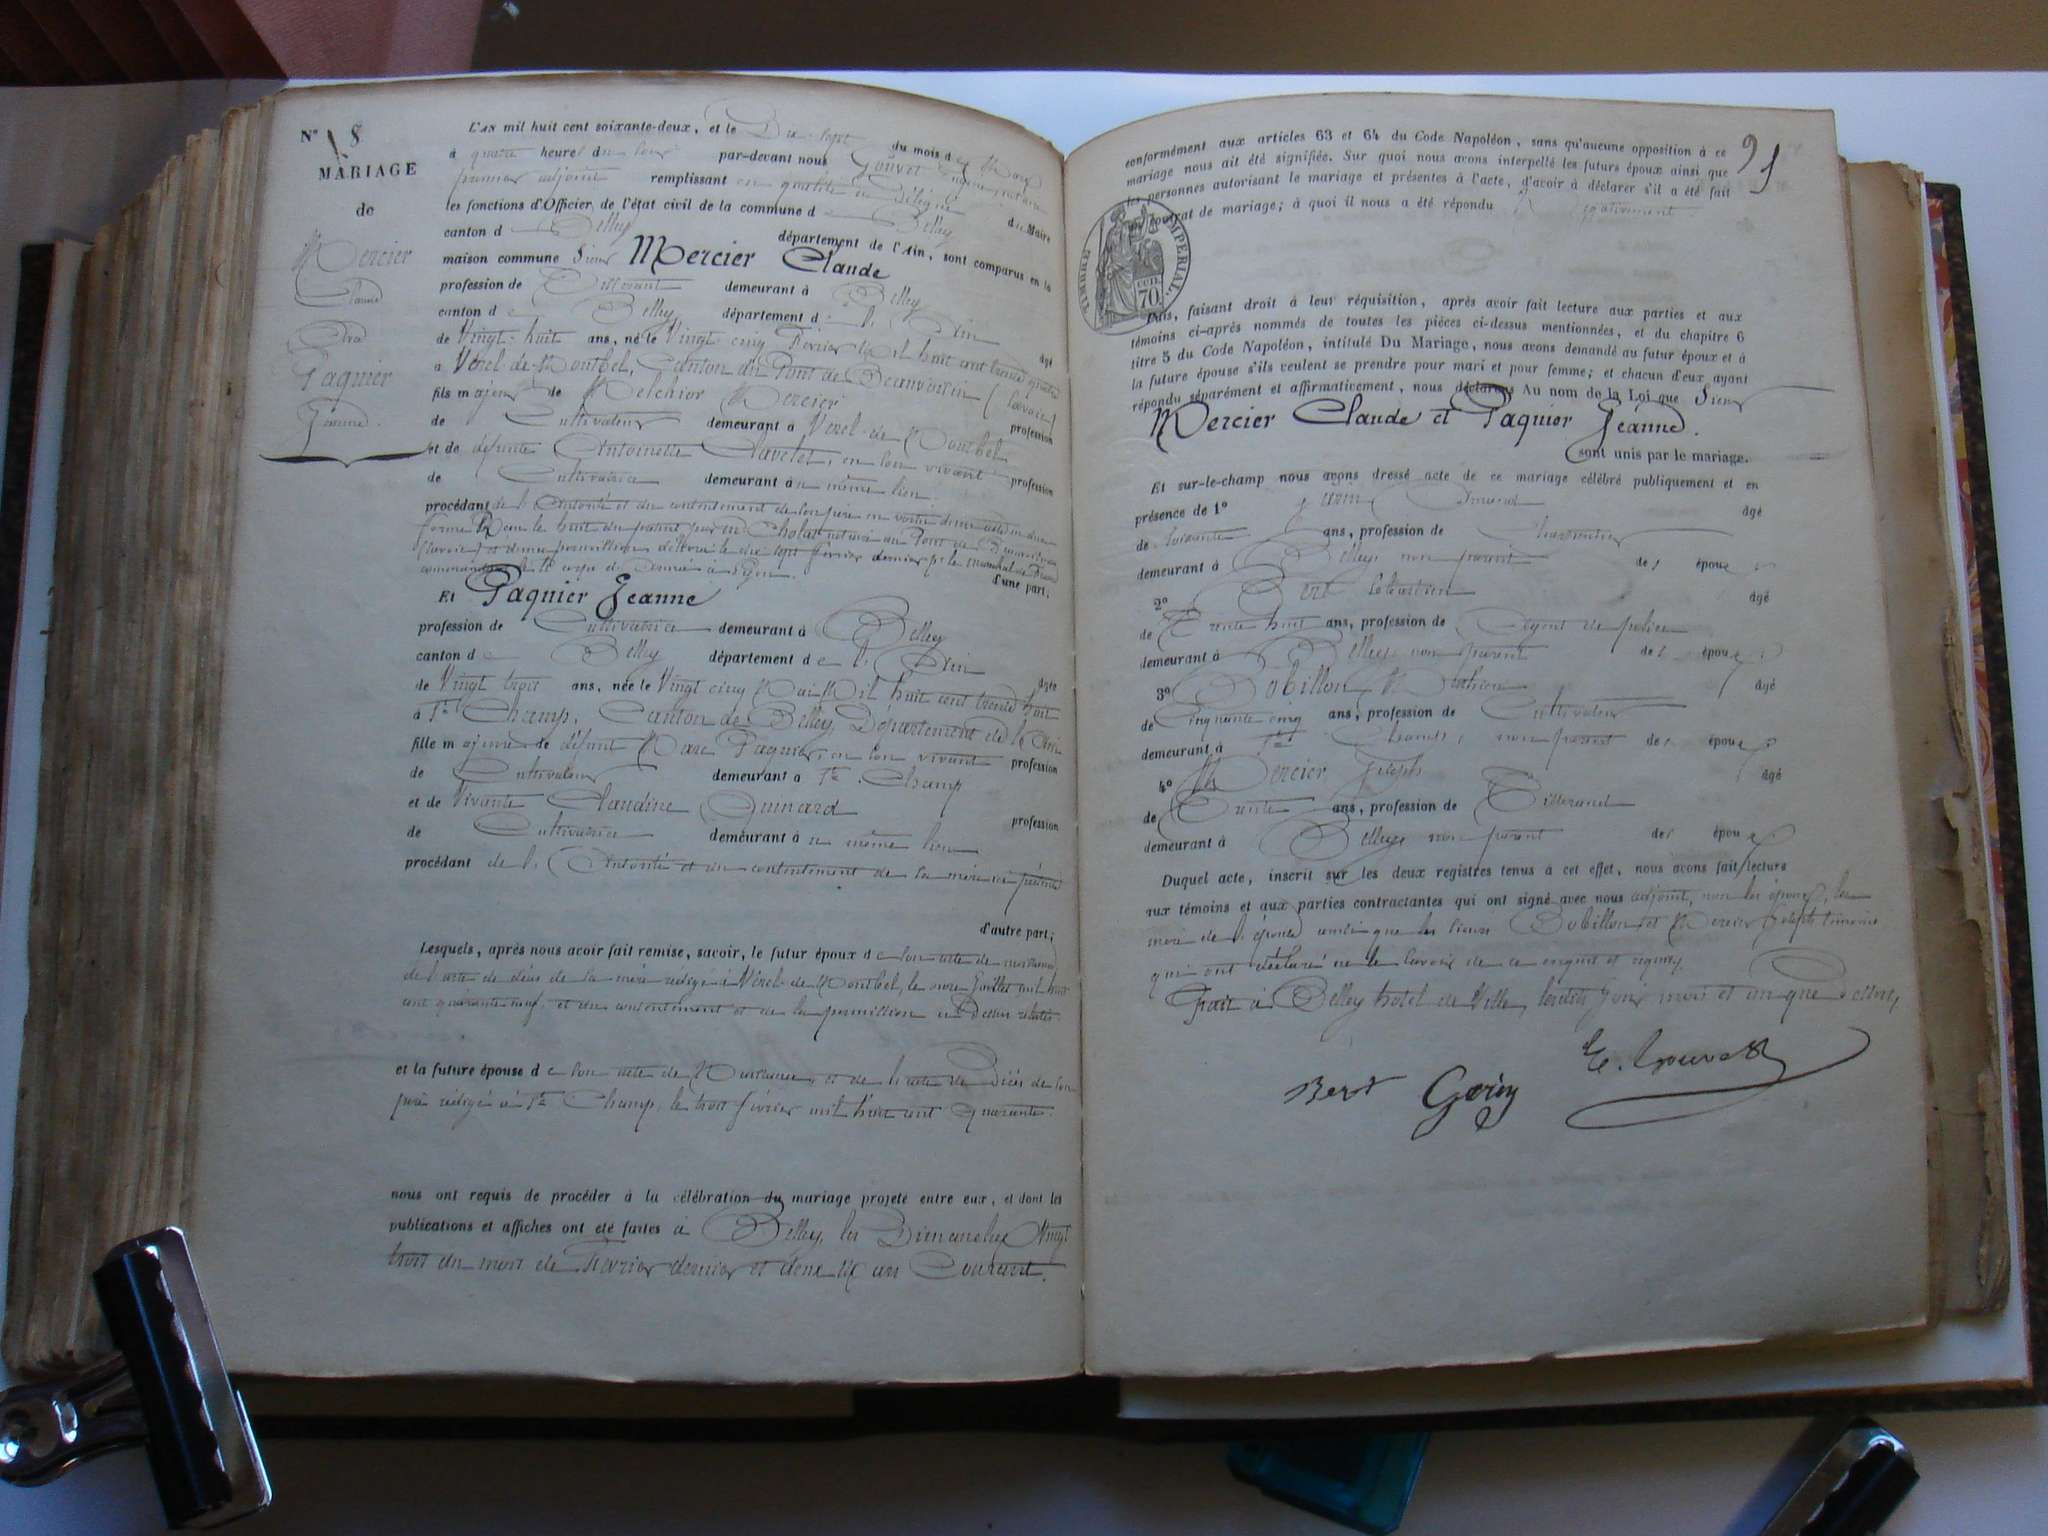 N° 18
MARIAGE
de
Mercier
Claude
Avec
Paquier
Jeanne.
L'AN mil huit cent soixante-deux, et le Dix sept du mois de Mars
à quatre heures du soir par-devant nous Gouvet
premier adjoint remplissant en qualité de Délégué du Maire
les fonctions d'Officier de l'état civil de la commune de Belley
canton de Belley département de l'Ain, sont comparus en la
maison commune Sieur Mercier Claude
profession de Tisserand demeurant à Belley
canton de Belley département de l'Ain âgé
de Vingt-huit ans, né le Vingt cinq Février Mil huit cent trente quatre
à Verel-de-Montbel, Canton du Pont de Beauvoisin (Savoie)
fils majeur de Melchior Mercier profession
de Cultivateur demeurant à Verel-de-Montbel
et de défunte Antoinette Clavelet, en son vivant profession
de Cultivatrice demeurant au même lieu.
procédant de l'Autorité et du contentement de son père en vertu d'un acte en due
forme Reçu le huit du présent par Me Cholat notaire au Pont de Beauvoisin
(Savoie) et d'une permission délivrée le dix sept février dernier par le maréchal de France
commandant le 4e corps d'armée à Lyon. d'une part.
Et Paquier Jeanne
profession de Cultivatrice demeurant à Belley
canton de Belley département de l'Ain âgée
de Vingt trois ans, née le Vingt cinq Mai Mil huit cent trente huit
à Ste Champ, Canton de Belley, Département de l'Ain
fille majeure de défunt Marc Paquier, en son vivant profession
de Cultivateur demeurant à Ste Champ
et de Vivante Claudine Guinard profession
de Cultivatrice demeurant au même lieu
procédant de l'Autorité et du contentement de sa mère ici présente
d'autre part;
Lesquels, après nous avoir fait remise, savoir, le futur époux de son acte de naissance
de l'acte de décès de sa mère rédigé à Verel-de-Montbel, le onze Juillet mil huit
cent quarante neuf, et du consentement et de la permission ci-Dessus relatés.
et la future épouse de son acte de Naissance et de l'acte de Décès de son
père rédigé à Ste Champ, le trois février mil huit cent quarante.
nous ont requis de procéder à la célébration du mariage projeté entre eux, et dont les
publications et affiches ont été faites à Belley, les Dimanches Vingt
trois du mois de Février dernier et deux du Courant.
91
conformément aux articles 63 et 64 du Code Napoléon, sans qu'aucune opposition à ce
mariage nous ait été signifiée. Sur quoi nous avons interpellé les futurs époux ainsi que
les personnes autorisant le mariage et présentes à l'acte, d'avoir à déclarer s'il a été fait
contrat de mariage; à quoi il nous a été répondu Négativement.
TIMBRE IMPERIAL
70
Puis, faisant droit à leur réquisition, après avoir fait lecture aux parties et aux
témoins ci-après nommés de toutes les pièces ci-dessus mentionnées, et du chapitre 6
titre 5 du Code Napoléon, intitulé Du Mariage, nous avons demandé au futur époux et à
la future épouse s'ils veulent se prendre pour mari et pour femme; et chacun d'eux ayant
répondu séparément et affirmativement, nous déclarons Au nom de la Loi que Sieur
Mercier Claude et Paquier Jeanne.
sont unis par le mariage.
Et sur-le-champ nous avons dressé acte de ce mariage célébré publiquement et en
présence de 1° âgé
de Soixante ans, profession de Charpentier
demeurant à Belley non parent des époux
2° Bert Sébastien âgé
de Trente huit ans, profession de Agent de police
demeurant à Belley non parent des époux
3° Bobillon Mathieu âgé
de Cinquante cinq ans, profession de Cultivateur
demeurant à Ste Champ, non parent des époux
4° Mercier Joseph âgé
de Trente ans, profession de Tisserand
demeurant à Belley non parent des époux
Duquel acte, inscrit sur les deux registres tenus à cet effet, nous avons fait lecture
aux témoins et aux parties contractantes qui ont signé avec nous adjoint, non les époux, la
mère de l'épouse ainsi que les sieurs Bobillon et Mercier Joseph témoins
qui ont déclaré ne le savoir de ce enquis et requis.
Fait à Belley hôtel de Ville, lesdits jour mois et an que dessus,
Bert Gorin E. Gouvet